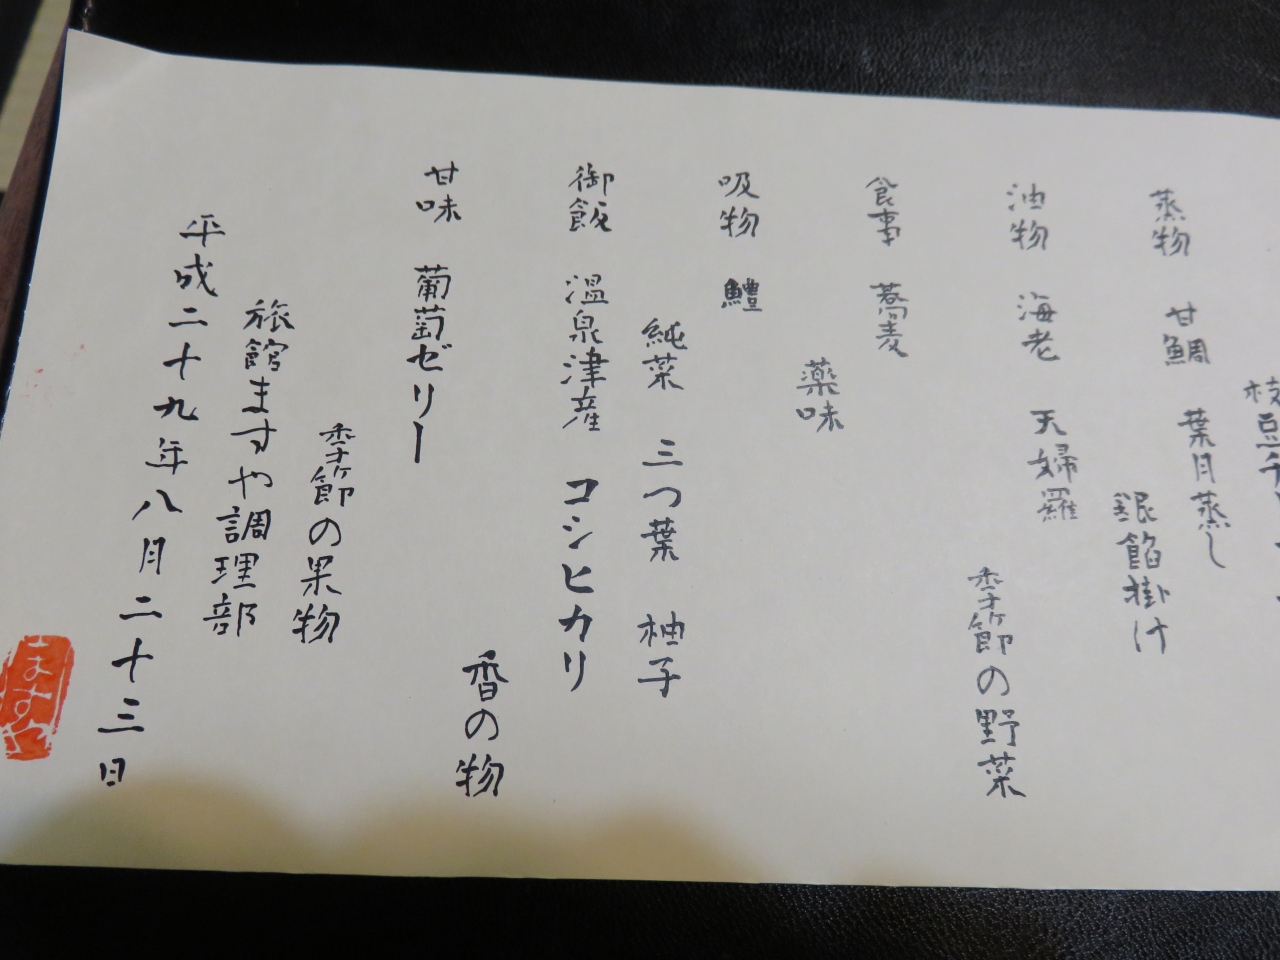 枝豆
蒸物 甘鯛 葉月蒸し
銀餡掛け
油物 海老 天婦羅
季節の野菜
食事 蕎麦
薬味
吸物 鱧
純菜 三つ葉 柚子
御飯 温泉津産 コシヒカリ
香の物
甘味 葡萄ゼリー
季節の果物
旅館ますや調理部
平成二十九年八月二十三日
ますや